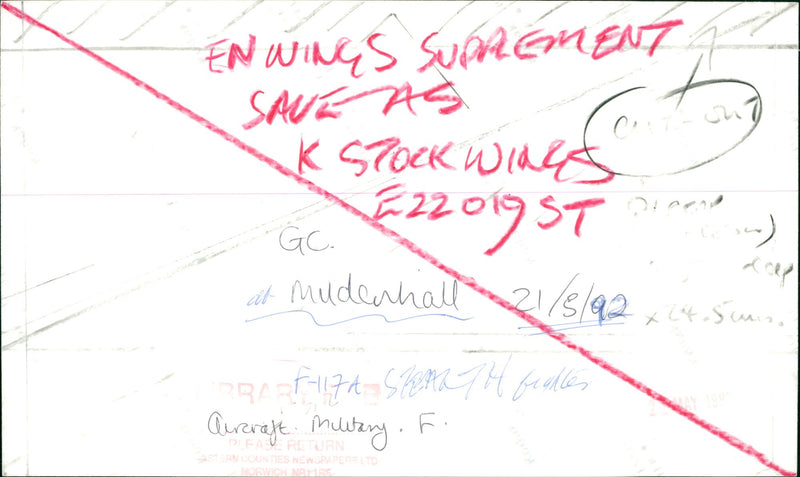 EN WINGS SUPPLEMENT
SAVE AS
K STOCK WINGS
CUT-OUT
E22019ST
GC.
at Mildenhall 21/5/92
x 14.5cms.
F-117A STEALTH fighter
LIBRARY
Aircraft. Military. F.
PLEASE RETURN
EASTERN COUNTIES NEWSPAPERS LTD
NORWICH NR1 1RE